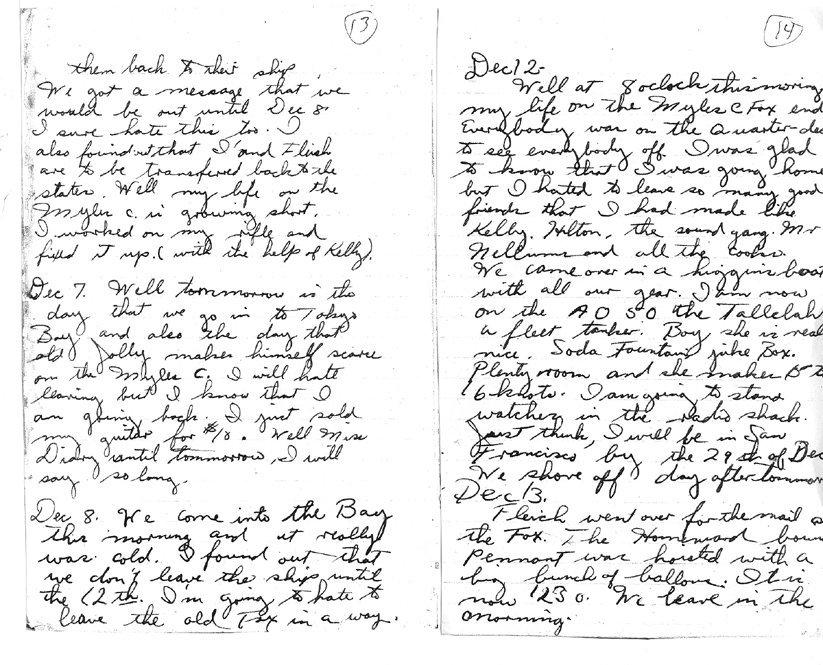 13
them back to their ship
We got a message that we
would be out until Dec 8.
I sure hate this too. I
also found out that I and Fleich
are to be transferred back to the
states. Well my life on the
Myles C. is growing short.
I worked on my rifle and
fixed it up. (with the help of Kelly).
Dec 7. Well tommorrow is the
day that we go in to Tokyo
Bay and also the day that
old Jolly makes himself scarce
on the Myles C. I will hate
leaving but I know that I
am going back. I just sold
my guitar for $18. Well Miss
Diary until tommorrow, I will
say so long.
Dec 8. We come into the Bay
this morning and it really
was cold. I found out that
we don't leave the ship until
the 12th. I'm going to hate to
leave the old Fox in a way.
14
Dec 12-
Well at 8 oclock this moring
my life on the Myles C Fox end
Everybody was on the Quarter-dec
to see everybody off I was glad
to know that I was going home
but I hated to leave so many good
friends that I had made like
Kelly. Hilton, the sound gang. Mr
Nellums and all the cooks.
We came over in a higgins boat
with all our gear. I am now
on the A O 50 the Tallelah
a fleet tanker. Boy she is real
nice. Soda Fountain, juke Box.
Plenty room and she makes 15 to
16 knots. I am going to stand
watches in the radio shack.
Just think, I will be in San
Francisco by the 29th of Dec
We shove off day after tommor
Dec 13.
Fleich went over for the mail o
the Fox. The Homeward boun
Pennant was hoisted with a
big bunch of ballons. It is
now 1230. We leave in the
morning.